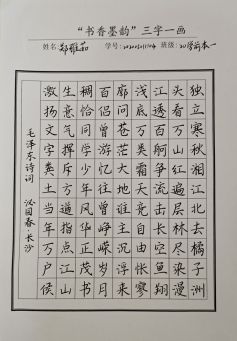 “书香墨韵”三字一画
姓名: 郑雅茹 学号: 班级: 22学前本一
独立寒秋湘江北去橘子洲
头看万山红遍层林尽染漫
江碧透百舸争流鹰击长空鱼翔
浅底万类霜天竞自由怅寥
廓问苍茫大地谁主沉浮携来
百侣曾游忆往昔峥嵘岁月
稠恰同学少年风华正茂书
生意气挥斥方遒指点江山
激扬文字粪土当年万户侯
毛泽东诗词 沁园春 长沙